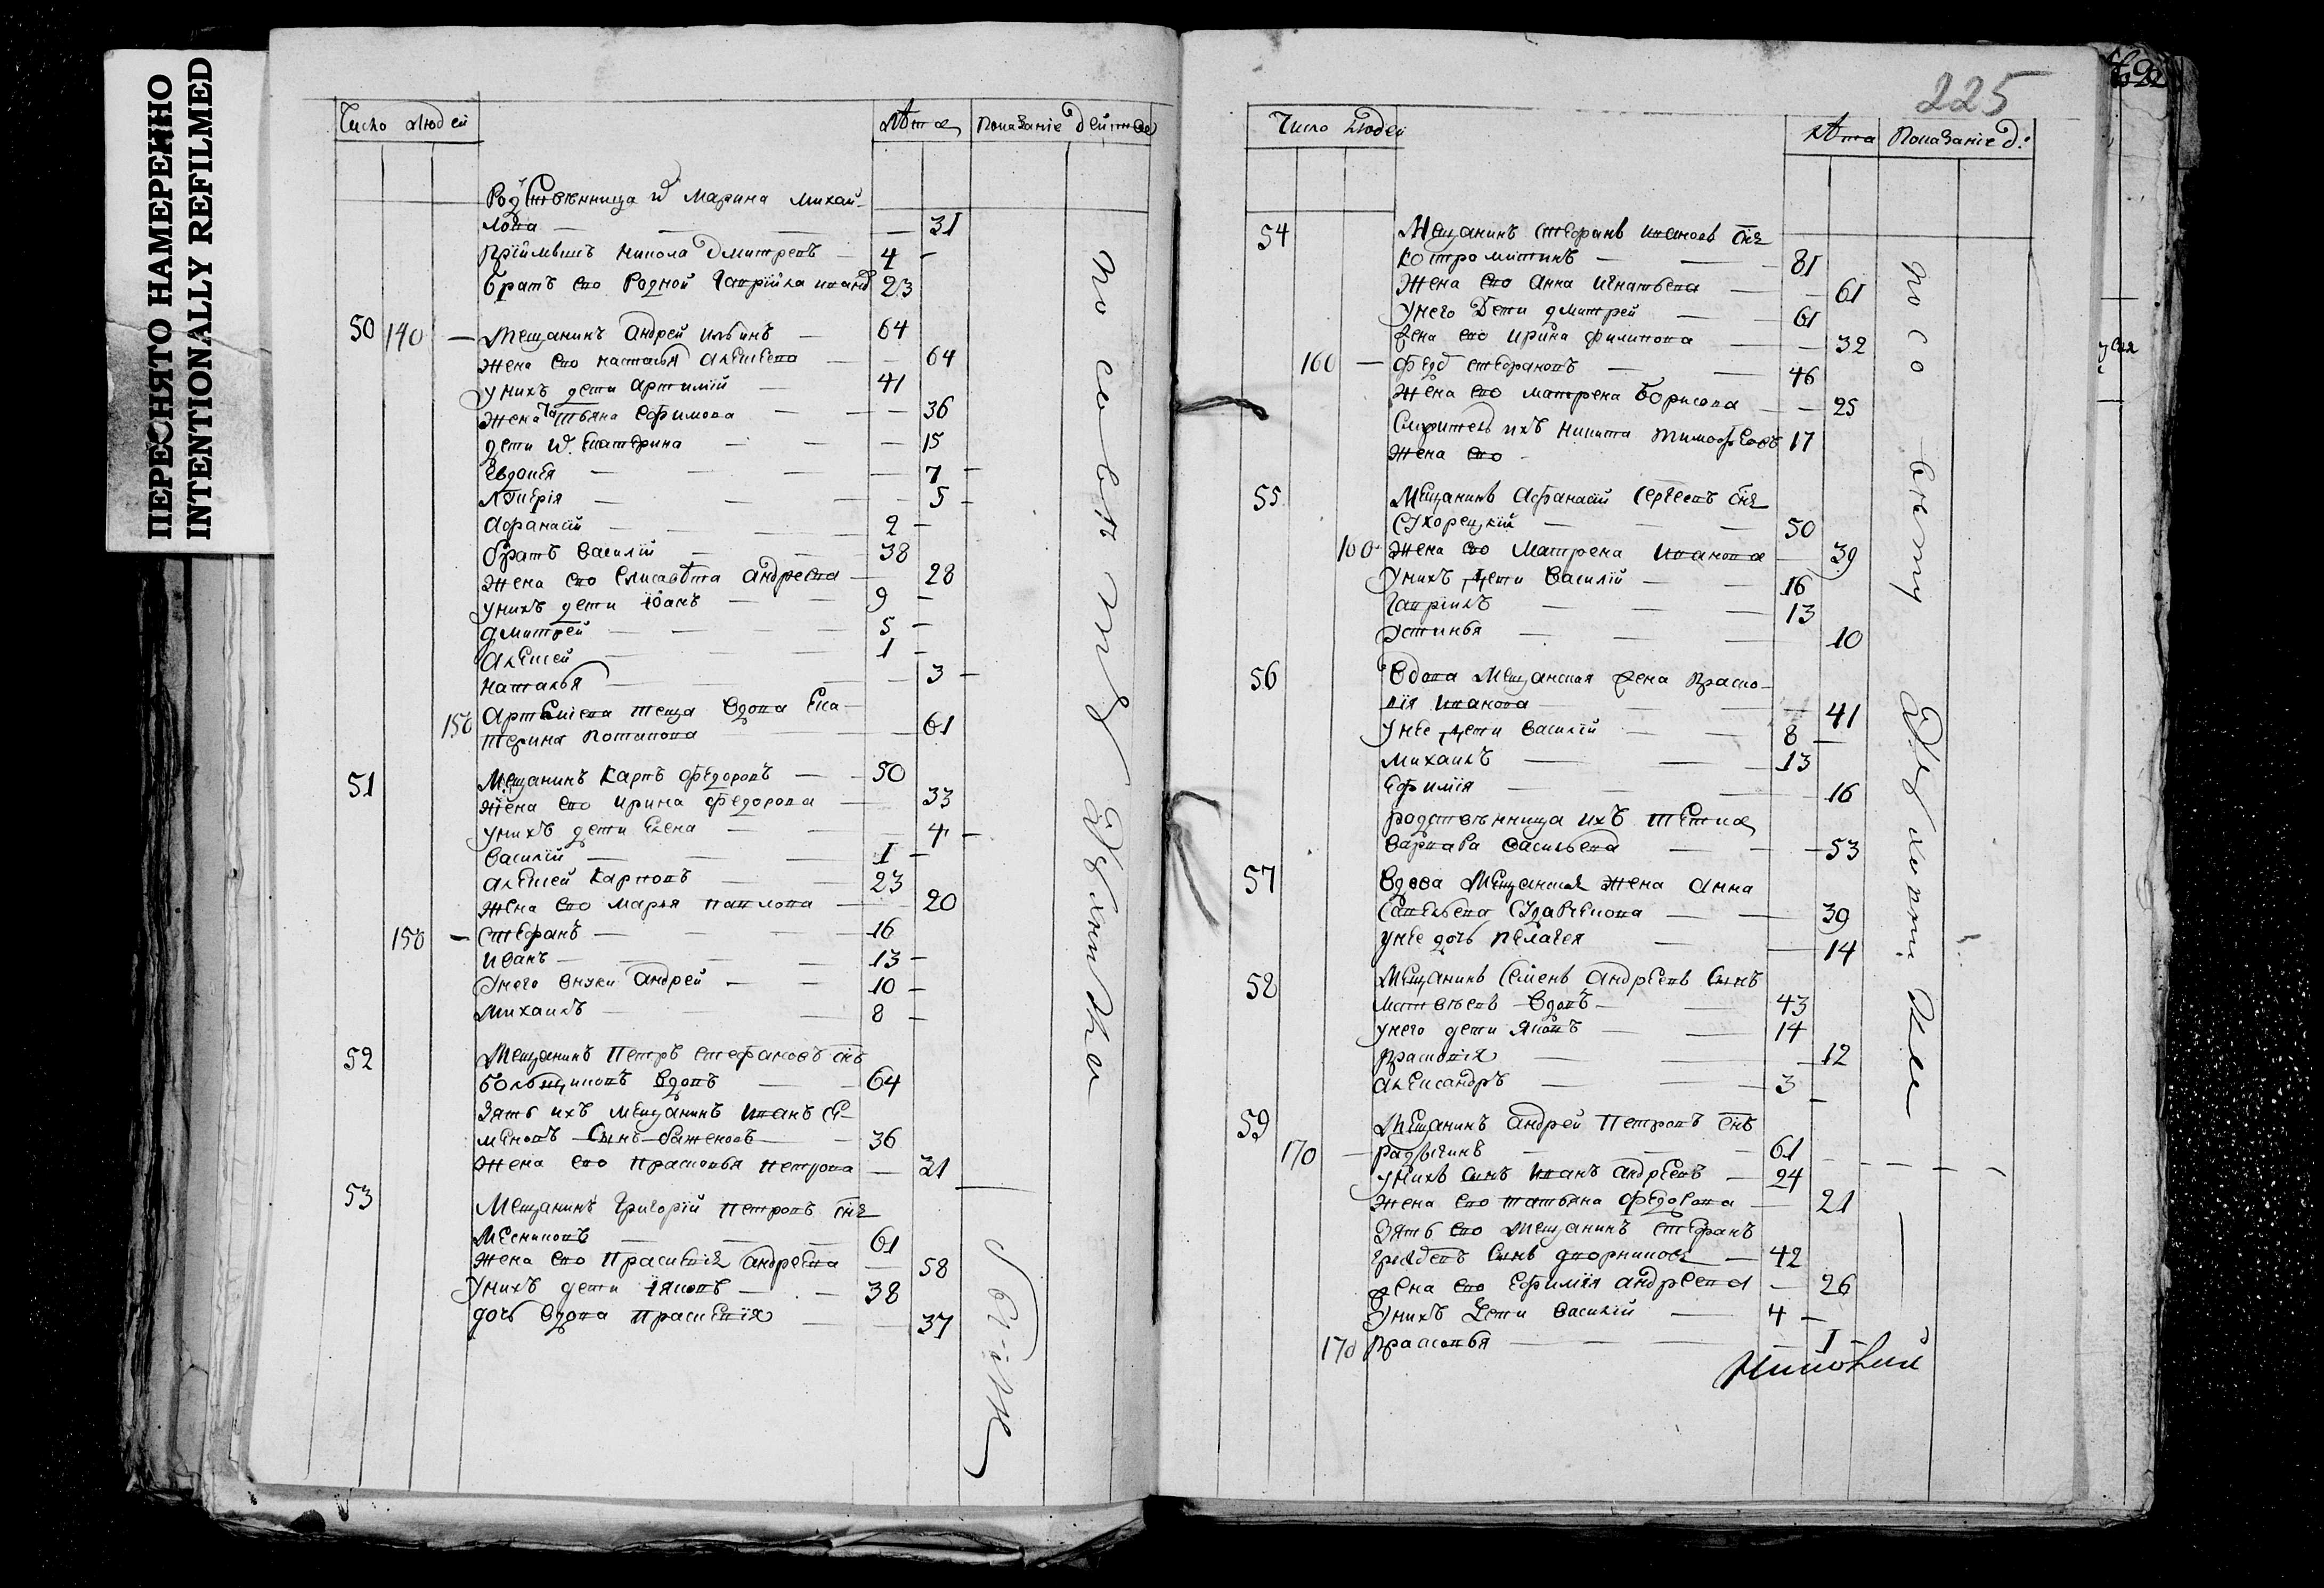 ПЕРЕСНЯТО НАМЕРЕННО
INTENTIONALLY REFILMED
Число людей
лѣта
показаніе дейст
Родственница в Марина михай-
лова 31
прїимышъ никола дмитревъ 4
братъ его родной гаврійла ивано 23
50 140 мещанинъ андрей ильинъ 64
жена его наталья алеѯеева 64
у нихъ дети артимїй 41
жена татьяна ефимова 36
дети в. екатерина 15
евдокея 7
5
афанасїй 2
братъ василїй 38
жена его елисавѣта андреева 28
у нихъ дети їванъ 9
дмитрей 5
алеѯей 1
наталья 3
150 теща вдова ека-
терина потапова 61
51 мещанинъ карпъ федоровъ 50
жена его ирина федорова 33
у нихъ дети елена 4
василїй 1
алеѯей карповъ 23
жена его марья павлова 20
150 стефанъ 16
иванъ 13
у него внуки андрей 10
михаилъ 8
52 мещанинъ петръ стефановъ снъ
вдовъ 64
зять ихъ мещанинъ иванъ се-
меновъ сынъ баженовъ 36
жена его прасковья петрова 31
53 мещанинъ григорїй петровъ снъ
месниковъ 61
жена его праскевїя андреева 58
у нихъ дети їяковъ 38
дочь вдова праскевїя 37
225
Число людей
лѣта
показаніе д:
54 мещанинъ стефанъ ивановъ снъ
костромитинъ 81
жена его анна игнатьева 61
у него дети дмитрей 61
жена его ирина филипова 32
160 федо стефановъ 46
жена его матрена борисова 25
ихъ никита тимофеевъ 17
жена его
55 мещанинъ афанасїй сергеевъ снъ
сухорецкїй 50
160 жена его матрена иванова 39
у нихъ дети василїй 16
гаврїилъ 13
устинья 10
56 вдова мещанская жена праско-
вїя иванова 41
у нее дети василїй 8
михаилъ 13
ефимїя 16
родственница ихъ тетка
варвара васильева 53
57 вдова мещанская жена анна
савельева судавцова 39
у нее дочь пелагея 14
58 мещанинъ семенъ андреевъ сынъ
матвеевъ вдовъ 43
у него дети яковъ 14
прасковїя 12
алеѯандръ 3
59 мещанинъ андрей петровъ снъ
170 61
у нихъ сынъ иванъ андреевъ 24
жена его татьяна федорова 21
зять его мещанинъ стефанъ
сынъ дворниковъ 42
жена его ефимїя андреева 26
у нихъ дети василїй 4
170 прасковья 1